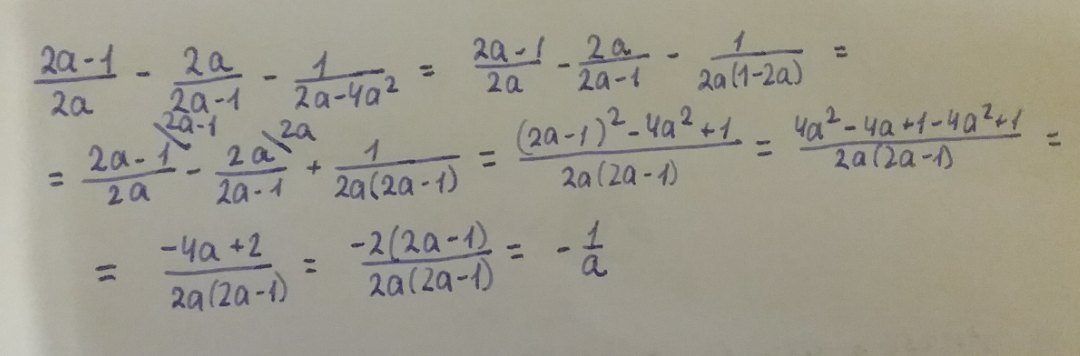 \frac{2a-1}{2a} - \frac{2a}{2a-1} - \frac{1}{2a-4a^2} = \frac{2a-1}{2a} - \frac{2a}{2a-1} - \frac{1}{2a(1-2a)} =
= \frac{2a-1}{2a}^{\backslash 2a-1} - \frac{2a}{2a-1}^{\backslash 2a} + \frac{1}{2a(2a-1)} = \frac{(2a-1)^2-4a^2+1}{2a(2a-1)} = \frac{4a^2-4a+1-4a^2+1}{2a(2a-1)} =
= \frac{-4a+2}{2a(2a-1)} = \frac{-2(2a-1)}{2a(2a-1)} = -\frac{1}{a}